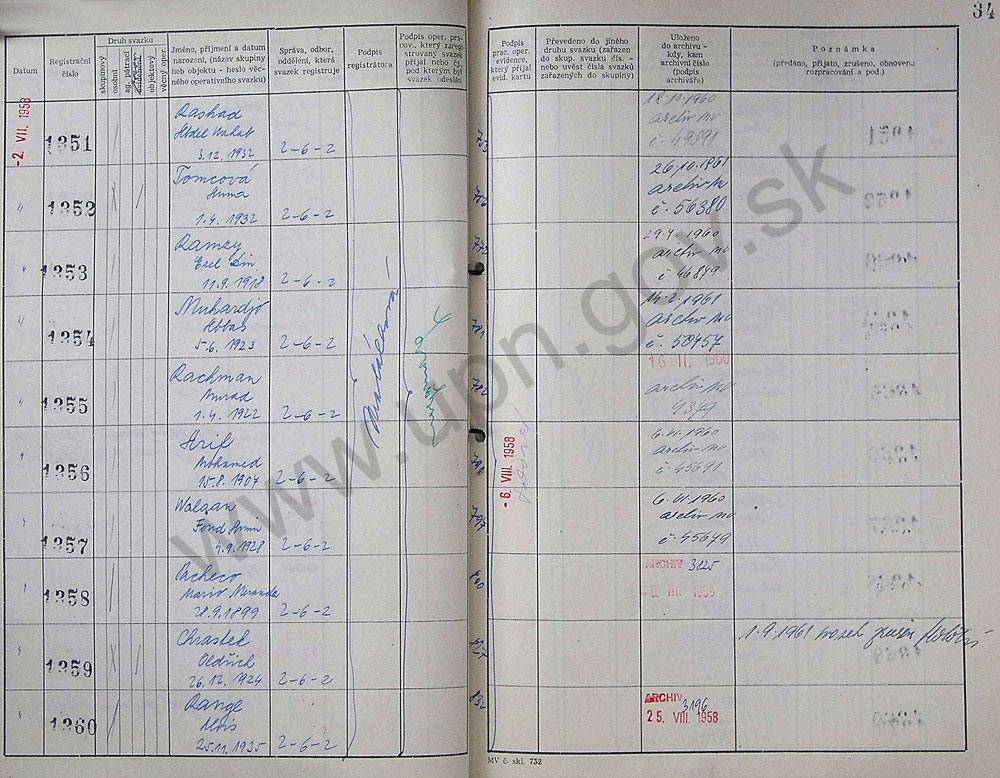 34
Datum
Registrační číslo
Druh svazku
skupinový
osobní
ag. pátrací
objektový
věcný oper.
Jméno, příjmení a datum
narození, (název skupiny
neb objektu - heslo věc-
ného operativního svazku)
Správa, odbor,
oddělení, která
svazek registruje
Podpis
registrátora
Podpis oper. pra-
cov., který zaregi-
strovaný svazek
přijal nebo čj.,
pod kterým byl
svazek odeslán
Podpis
prac. oper.
evidence,
který přijal
evid. kartu
Převedeno do jiného
druhu svazku (zařazen
do skup. svazku čís. -
nebo uvést čísla svazků
zařázených do skupiny)
Uloženo
do archivu -
kdy, kam
archivní číslo
(podpis
archiváře)
Poznámka
(předáno, přijato, zrušeno, obnoveno
rozpracování a pod.)
-2. VII. 1958
1351
Rashad
Abdel
3.12. 1932 2-6-2
18.11.1960
archiv mv
č. 49891
1352
Tomcová
Anna
1.4. 1932 2-6-2
26.10.1961
archiv mv
č. 56380
1353
Ramzy
Ezel Din
11.9.1918 2-6-2
772
29.4.1960
archiv mv
č. 46849
1354
Muhardjo
Abbas
5.6. 1923 2-6-2
781
14.2.1961
archiv mv
č. 50457
1355
Rachman
Murad
1.4. 1922 2-6-2
782
16. III. 1960
archiv mv
9379
1356
Arif
Mohamed
15.8. 1904 2-6-2
- 6. VIII. 1958
6.VI.1960
archiv mv
č. 45691
1357
Walgan
4.9. 1928 2-6-2
797
6.VI.1960
archiv mv
č. 45679
1358
Pacheco
Mario Meranda
28.9.1899 2-6-2
800
ARCHIV 3125
1359
Chrastek
Oldřich
26.12. 1924 2-6-2
827
1.9.1961
1360
Range
Alois
25.11. 1935 2-6-2
132
ARCHIV 3196
25. VIII. 1958
MV č. skl. 732
www.upn.gov.sk